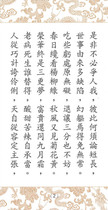 是非不必爭人我，彼此何須論短長，
世事由來多缺陷，幻軀焉得免無常，
吃些虧處原無礙，退讓三分也不妨，
春日才看楊柳綠，秋風又見菊花黃，
榮華終是三更夢，富貴還同九月霜，
老病死生誰替得，酸甜苦辣自承當，
人從巧計誇伶俐，天自從容定主張，